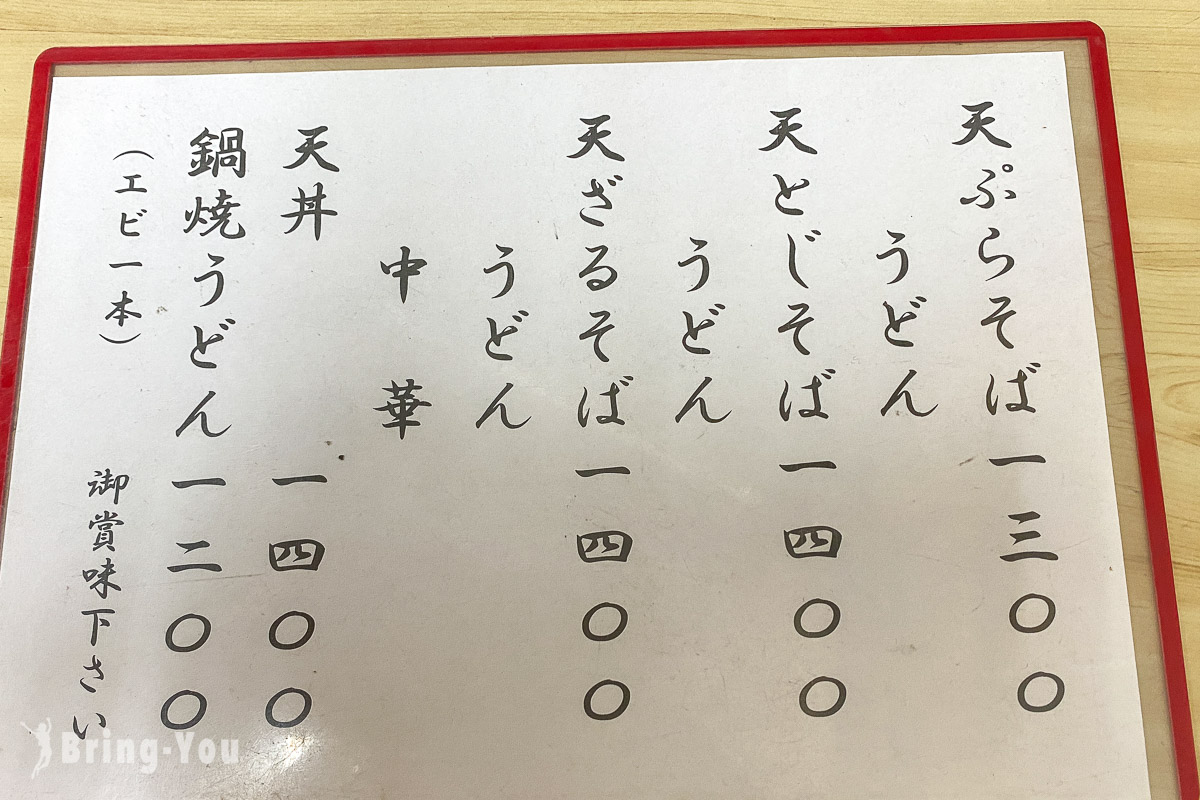 天ぷらそば一三〇〇
うどん
天とじそば一四〇〇
うどん
天ざるそば一四〇〇
うどん
中華
天丼 一四〇〇
鍋焼うどん一二〇〇
（エビ一本） 御賞味下さい
Bring-You